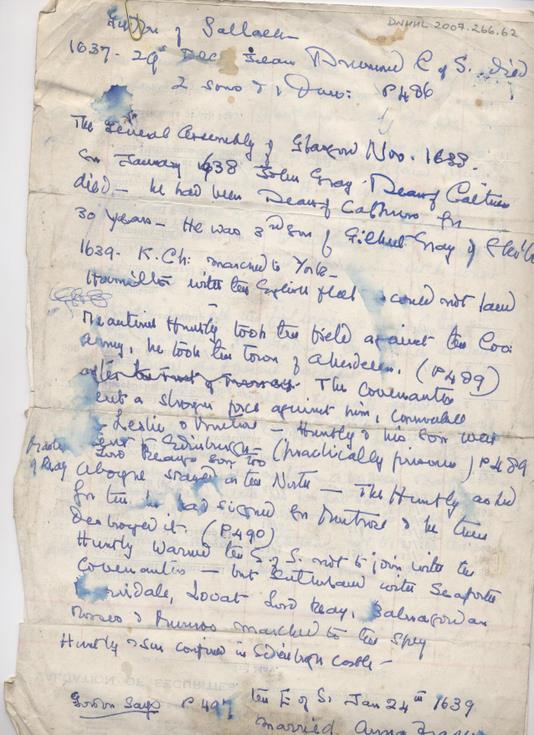 DNHHL 2007.266.62
Gordon of Sallach
1637 - 29 Dec Jean Drummond C of S. died
2 sons & 1 Daur: P486
The General Assembly of Glasgow Nov. 1638.
On January 1638 John Gray Dean of Caitnes
died - he had been Dean of Cathnes for
30 years - He was 3rd son of Gilbert Gray of
1639 - K. Ch: marched to York -
Hamilton with the English fleet could not land
Meantime Huntly took the field against the Cov:
army, he took the town of Aberdeen. (P489)
after the The Covenanters
sent a stronger force against him, commanded
Leslie & Montrose - Huntly & his son went
sent to Edinburgh - (practically prisoners) P489
Master of Reay
Lord Reays son too
Aboyne stayed in the North - The Huntly asked
for the he had signed for Montrose & he then
destroyed it. (P490)
Huntly warned the E of S. not to join with the
Covenanters - but Sutherland with Seaforth
Lovat Lord Reay, Balnagowan
Monro & marched to the Spey
Huntly & son confined in Edinburgh castle -
VALUATION OF SECURITIES
Gordon Says P 497 the E of S. Jan 24th 1639
married Anna Fraser